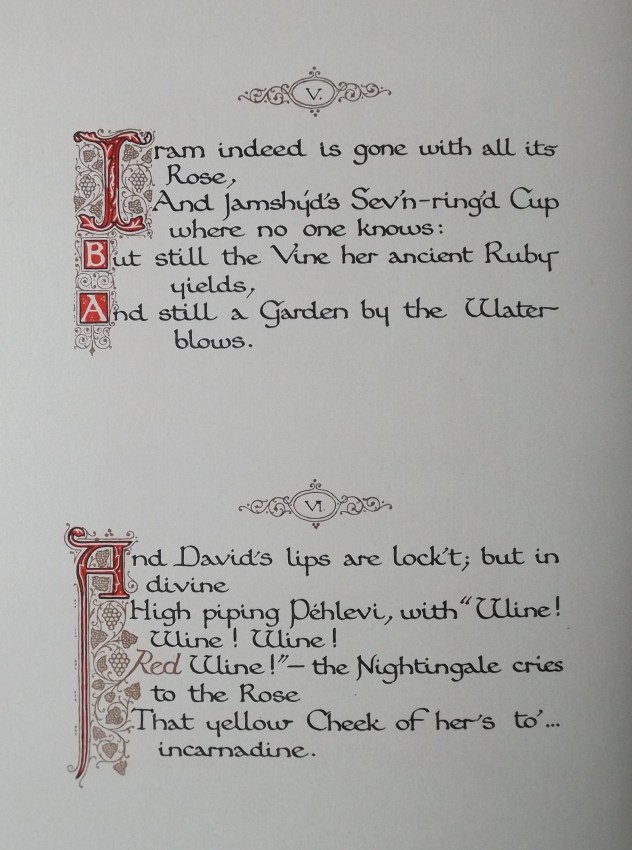 V.
Iram indeed is gone with all its
Rose,
And Jamshýd's Sev'n-ring'd Cup
where no one knows:
But still the Vine her ancient Ruby
yields,
And still a Garden by the Water
blows.
VI.
And David's lips are lock't; but in
divine
High piping Péhlevi, with "Wine!
Wine! Wine!
Red Wine!"— the Nightingale cries
to the Rose
That yellow Cheek of her's to'...
incarnadine.